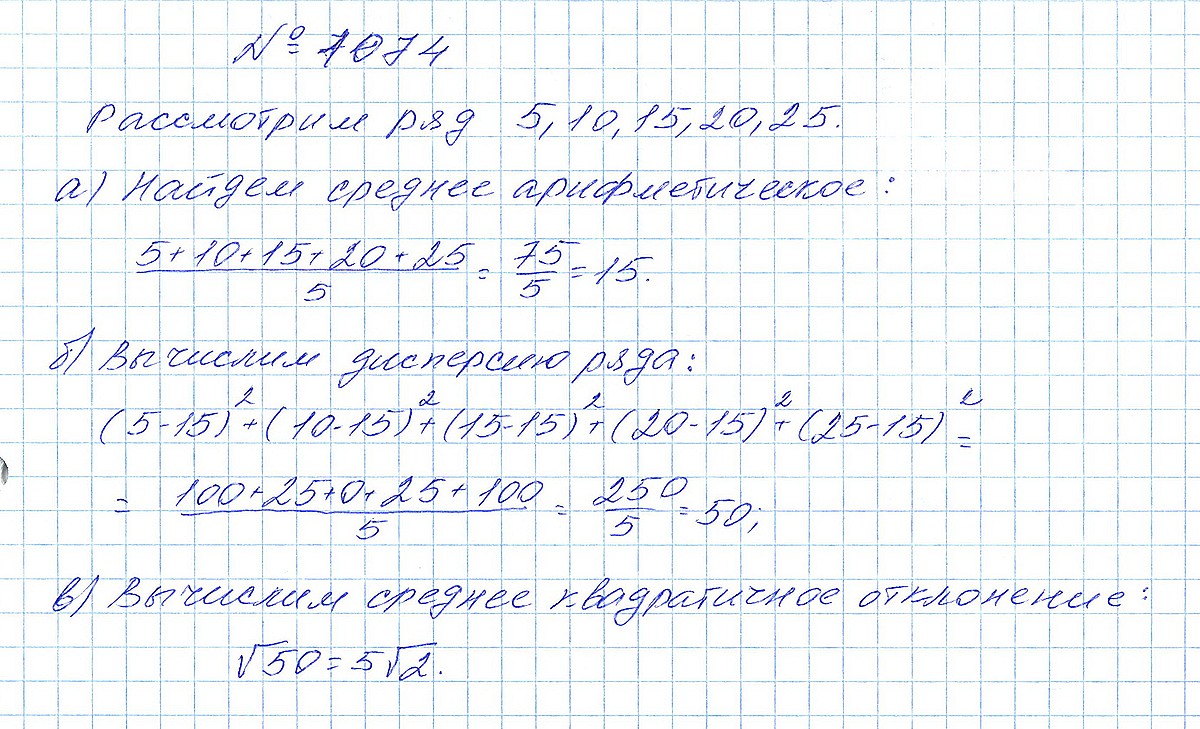 № 1074
Рассмотрим ряд 5, 10, 15, 20, 25.
а) Найдем среднее арифметическое:
(5+10+15+20+25)/5 = 75/5 = 15.
б) Вычислим дисперсию ряда:
(5-15)²+(10-15)²+(15-15)²+(20-15)²+(25-15)² =
= (100+25+0+25+100)/5 = 250/5 = 50;
в) Вычислим среднее квадратичное отклонение:
√50 = 5√2.